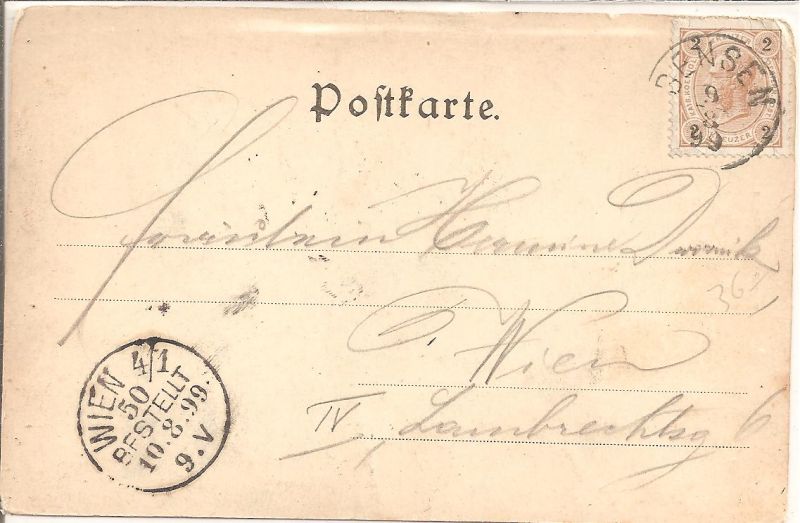 2 2
KREUZER
2 2
BENSEN
9
8
99
Postkarte.
Fräulein Hermine
36
Wien
IV, Lambrechtsg 6
WIEN 4/1
50
BESTELLT
10.8.99.
9.V